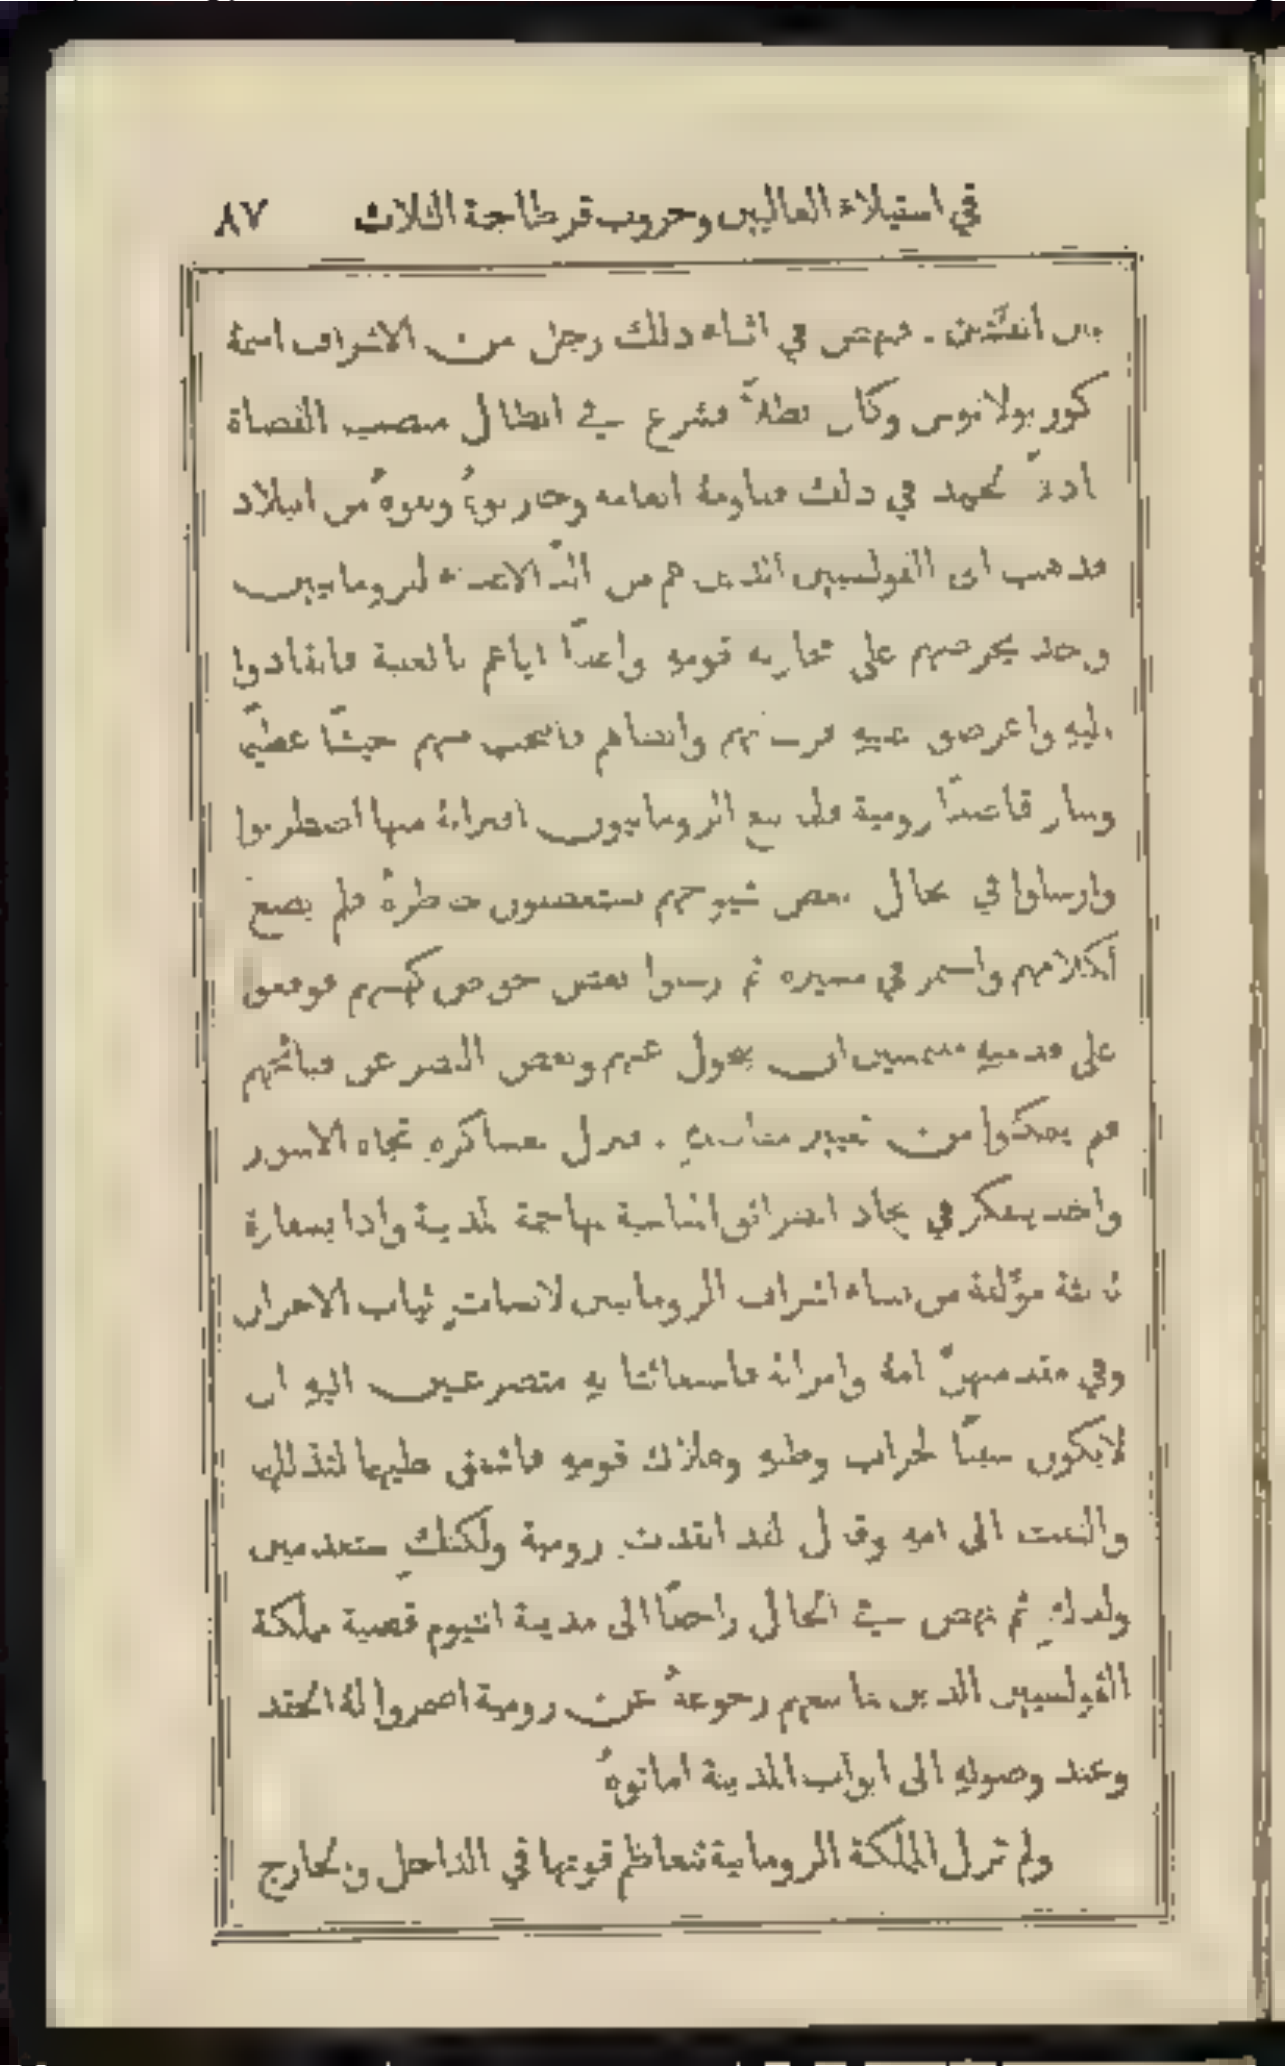 في استيلاء الغاليين وحروب قرطاجة الثلاث ٨٧
بين الفئتين . فنهض في اثناء ذلك رجل من الاشراف اسمهُ
كوريولانوس وكان بطلاً فشرع في ابطال منصب القضاة
في ذلك مقاومة العامه وحاربوهُ ونفوهُ من البلاد
فذهب الى الفولسيين الذين هم من الدّ الاعداء للرومانيين
واخذ يحرضهم على محاربة قومهِ واعداً اياهم بالغلبة فانقادوا
اليهِ واعرضوا عليهِ فرسانهم وابطالهم فانتخب منهم جيشاً عظيماً
وسار قاصداً رومية فلما بلغ الرومانيون اقترابهُ منها اضطربوا
وارسلوا في الحال بعض شيوخهم يستعطفون خاطرهُ فلم يصغَ
لكلامهم واستمر في مسيره ثم ارسلوا بعض خواص كهنتهم فوقعوا
على قدميهِ ملتمسين ان يتحول عنهم وبغض النظر عن قبائحهم
فلم يتمكنوا من تغيير مقاصدهِ . فنزل بعساكرهِ تجاه الاسوار
واخذ يفتكر في ايجاد الطرائق المناسبة لمهاجمة المدينة واذا بسفارة
ثالثة مؤلفة من نساء اشراف الرومانيين لابساتٍ ثياب الاحزان
وفي مقدمتهنَّ امهُ وامرأتهُ فاستغاثتا بهِ متضرعتين اليهِ ان
لا يكون سبباً لخراب وطنهِ وهلاك قومهِ فاشفق عليها لتذللها
والتفت الى امهِ وقال لقد انقذتِ رومية ولكنكِ ستعدمين
ولدكِ ثم نهض في الحال راجعاً الى مدينة انتيوم قصبة مملكة
الفولسيين الذين لما سمعهم رجوعهُ عن رومية اضمروا لهُ الحقد
وعند وصولهِ الى ابواب المدينة اماتوهُ
ولم تزل المملكة الرومانية تتعاظم قوتها في الداخل والخارج